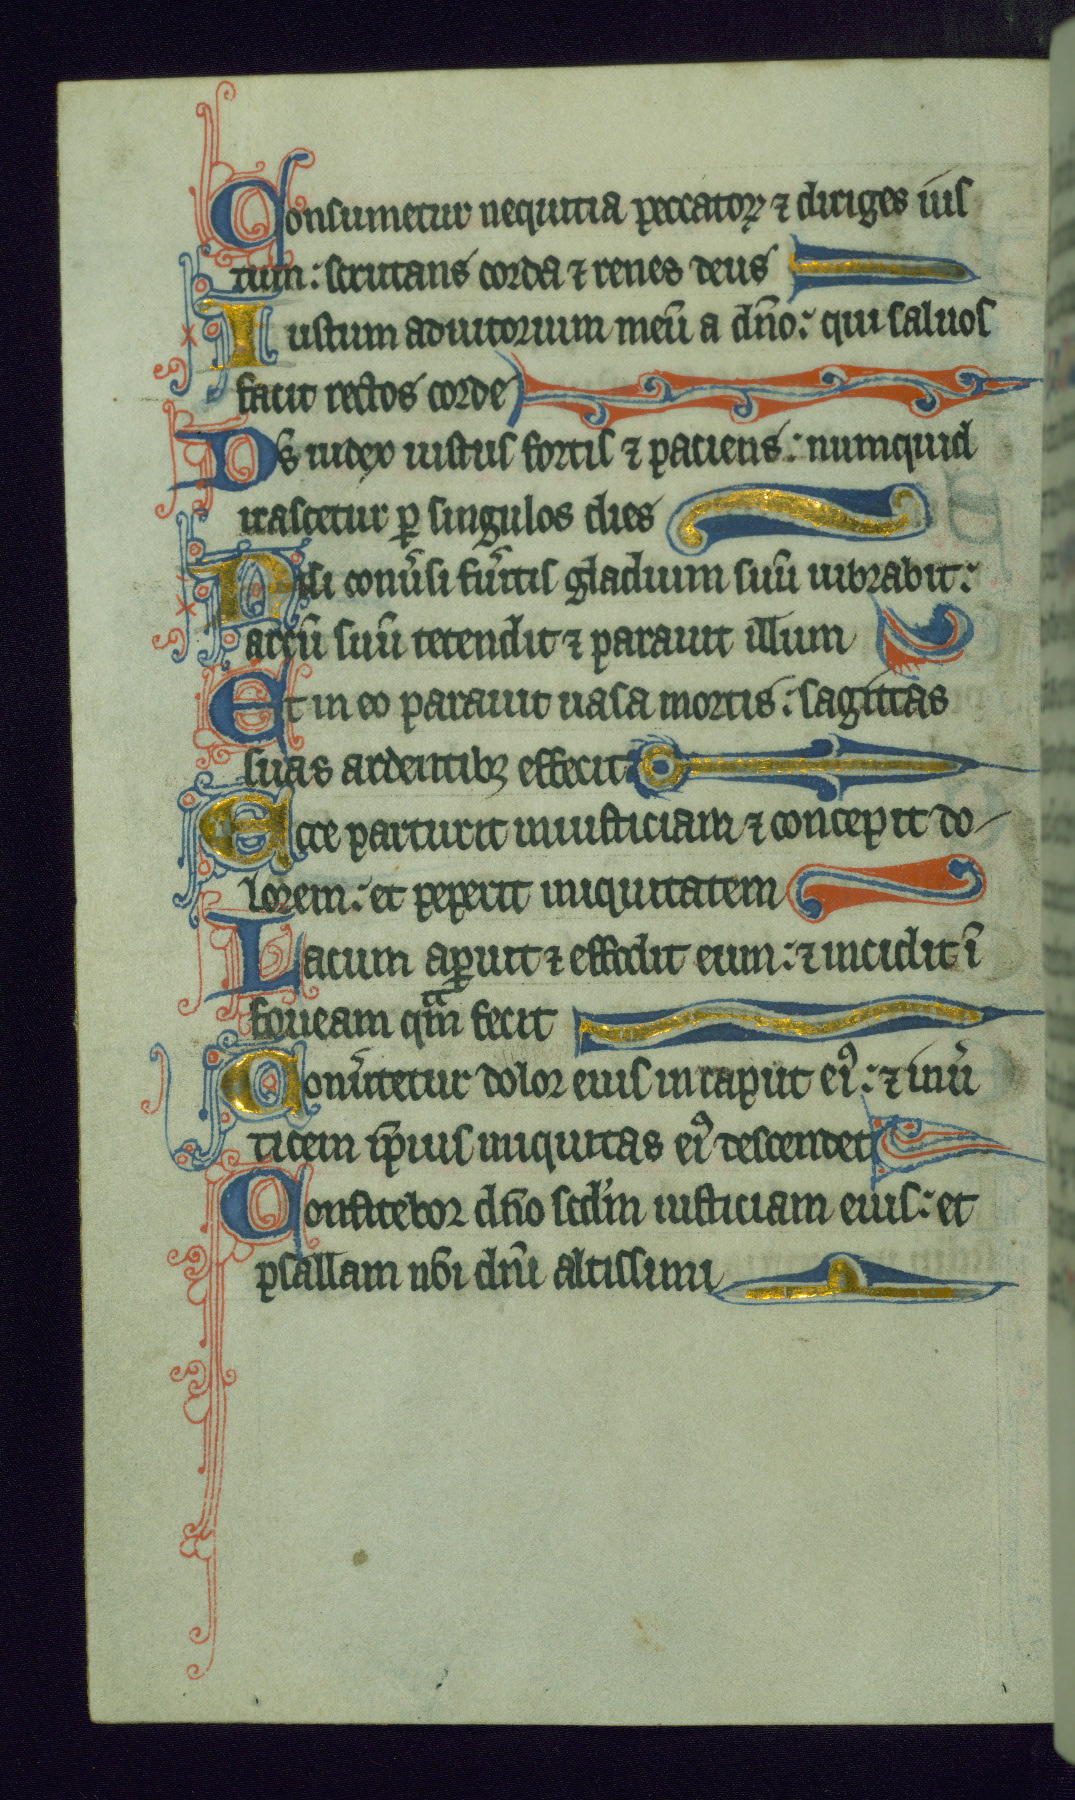 Consumetur nequitia peccatoꝝ ⁊ diriges ius
tum: scrutans corda ⁊ renes deus
Iustum adiutorium meū a dn̄o: qui saluos
facit rectos corde
Ds̄ iudex iustus fortis ⁊ paciens: numquid
irascetur ꝑ singulos dies
Nisi conūsi fūitis gladium suū uibrabit:
arcū suū tetendit ⁊ parauit illum
Et in eo parauit uasa mortis: sagittas
suas ardentibꝫ effecit
Ecce parturit iniusticiam ⁊ concepit do
lorem: et peperit iniquitatem
Lacum aꝑuit ⁊ effodit eum: ⁊ incidit ī
foueam qm̄ fecit
Conūtetur dolor eius in caput eiꝰ: ⁊ inū
ticem ip̄ius iniquitas eiꝰ descendet
Confitebor dn̄o scdm̄ iusticiam eius: et
psallam nōi dn̄i altissimi